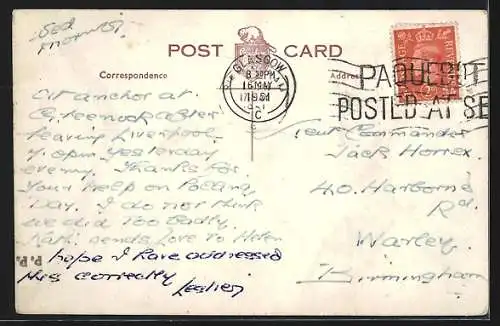 POST CARD
Correspondence
Address
GLASGOW
PAQUEBOT
POSTED AT SE
At anchor at
Greenock after
leaving Liverpool
4 opm yesterday
evening. Thanks for
your help on Packing
Day. I do not think
we did too badly.
Kath sends love to Helen
hope I have addressed
this correctly
P.P.
Lieut Commander
Jack Horrex
40 Harborne
Rd.
Warley.
Birmingham